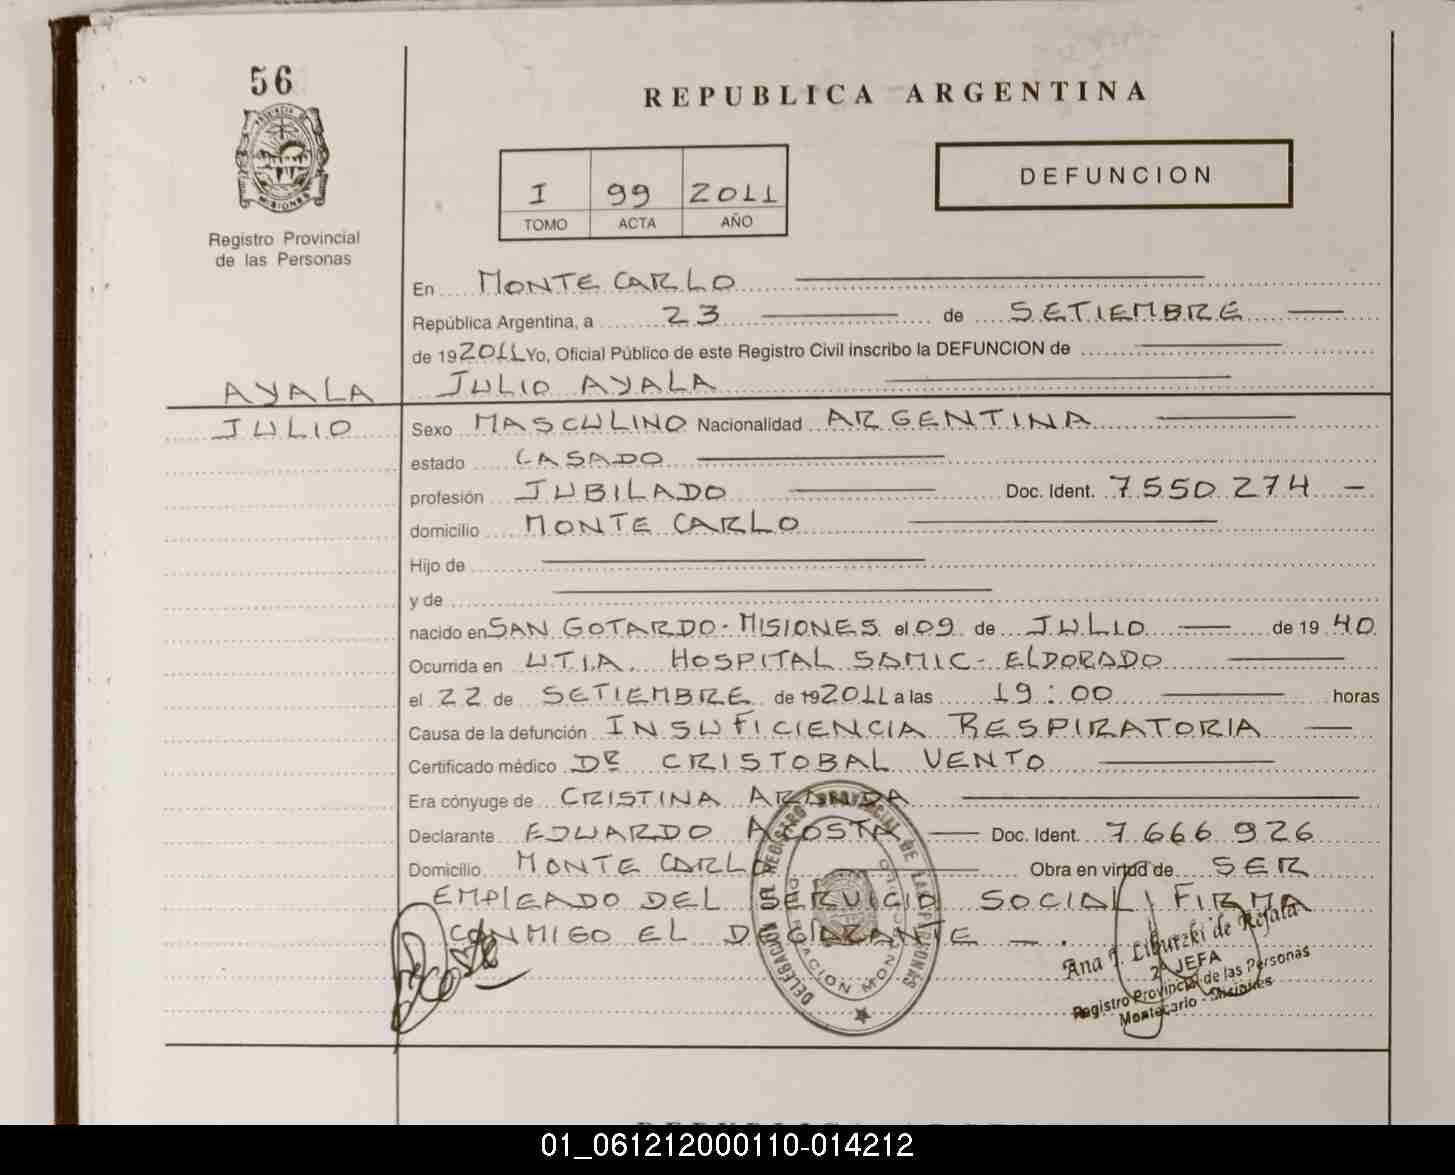 56
REPUBLICA ARGENTINA
I 99 2011
TOMO ACTA AÑO
DEFUNCION
PROVINCIA DE MISIONES
Registro Provincial
de las Personas
En MONTE CARLO
República Argentina, a 23 de SETIEMBRE
de 192011 Yo, Oficial Público de este Registro Civil inscribo la DEFUNCION de
AYALA JULIO AYALA
JULIO Sexo MASCULINO Nacionalidad ARGENTINA
estado CASADO
profesión JUBILADO Doc. Ident. 7550.274 -
domicilio MONTE CARLO
Hijo de
y de
nacido en SAN GOTARDO - MISIONES el 09 de JULIO de 19 40
Ocurrida en U.T.I.A. HOSPITAL SAMIC - ELDORADO
el 22 de SETIEMBRE de 192011 a las 19:00 horas
Causa de la defunción INSUFICIENCIA RESPIRATORIA
Certificado médico DR CRISTOBAL VENTO
Era cónyuge de CRISTINA
Declarante EDUARDO ACOSTA Doc. Ident. 7.666.926
Domicilio MONTE CARLO Obra en virtud de SER
EMPLEADO DEL SERVICIO SOCIAL FIRMA
CONMIGO EL DECLARANTE - .
DELEGACION DEL REGISTRO PROVINCIAL DE LAS PERSONAS
Ana
2ª JEFA
Registro Provincial de las Personas
Montecarlo - Misiones
01_061212000110-014212